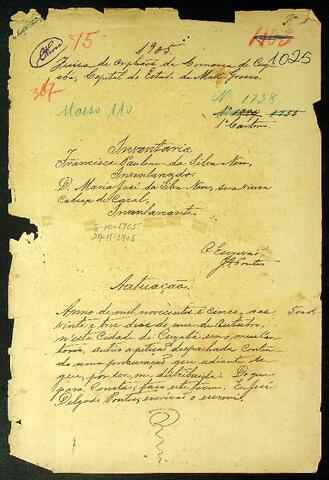 75
1905
1025
Juizo de Orphãos da Comarca de Cuya
ba, Capital do Estado de Matto Grosso
367
Masso 110
Nº 1738
1º Cartorio
Inventario
Francisco Paulino da Silva
Inventariado
D. Maria José da Silva
Cabeça de Casal,
Inventariante.
29-11-1905
O Escrivão
Autuação.
Anno de mil novecentos e cinco, aos
vinte e tres dias do mez de Outubro,
n'esta Cidade de Cuyabá, em meu Car
torio, autuo a petição despachada conten
do uma procuração que adiante se
que, por ser me distribuida. Do que
para constar, faço este termo. Eu José
Delgado Pontes, escrivão o escrevi